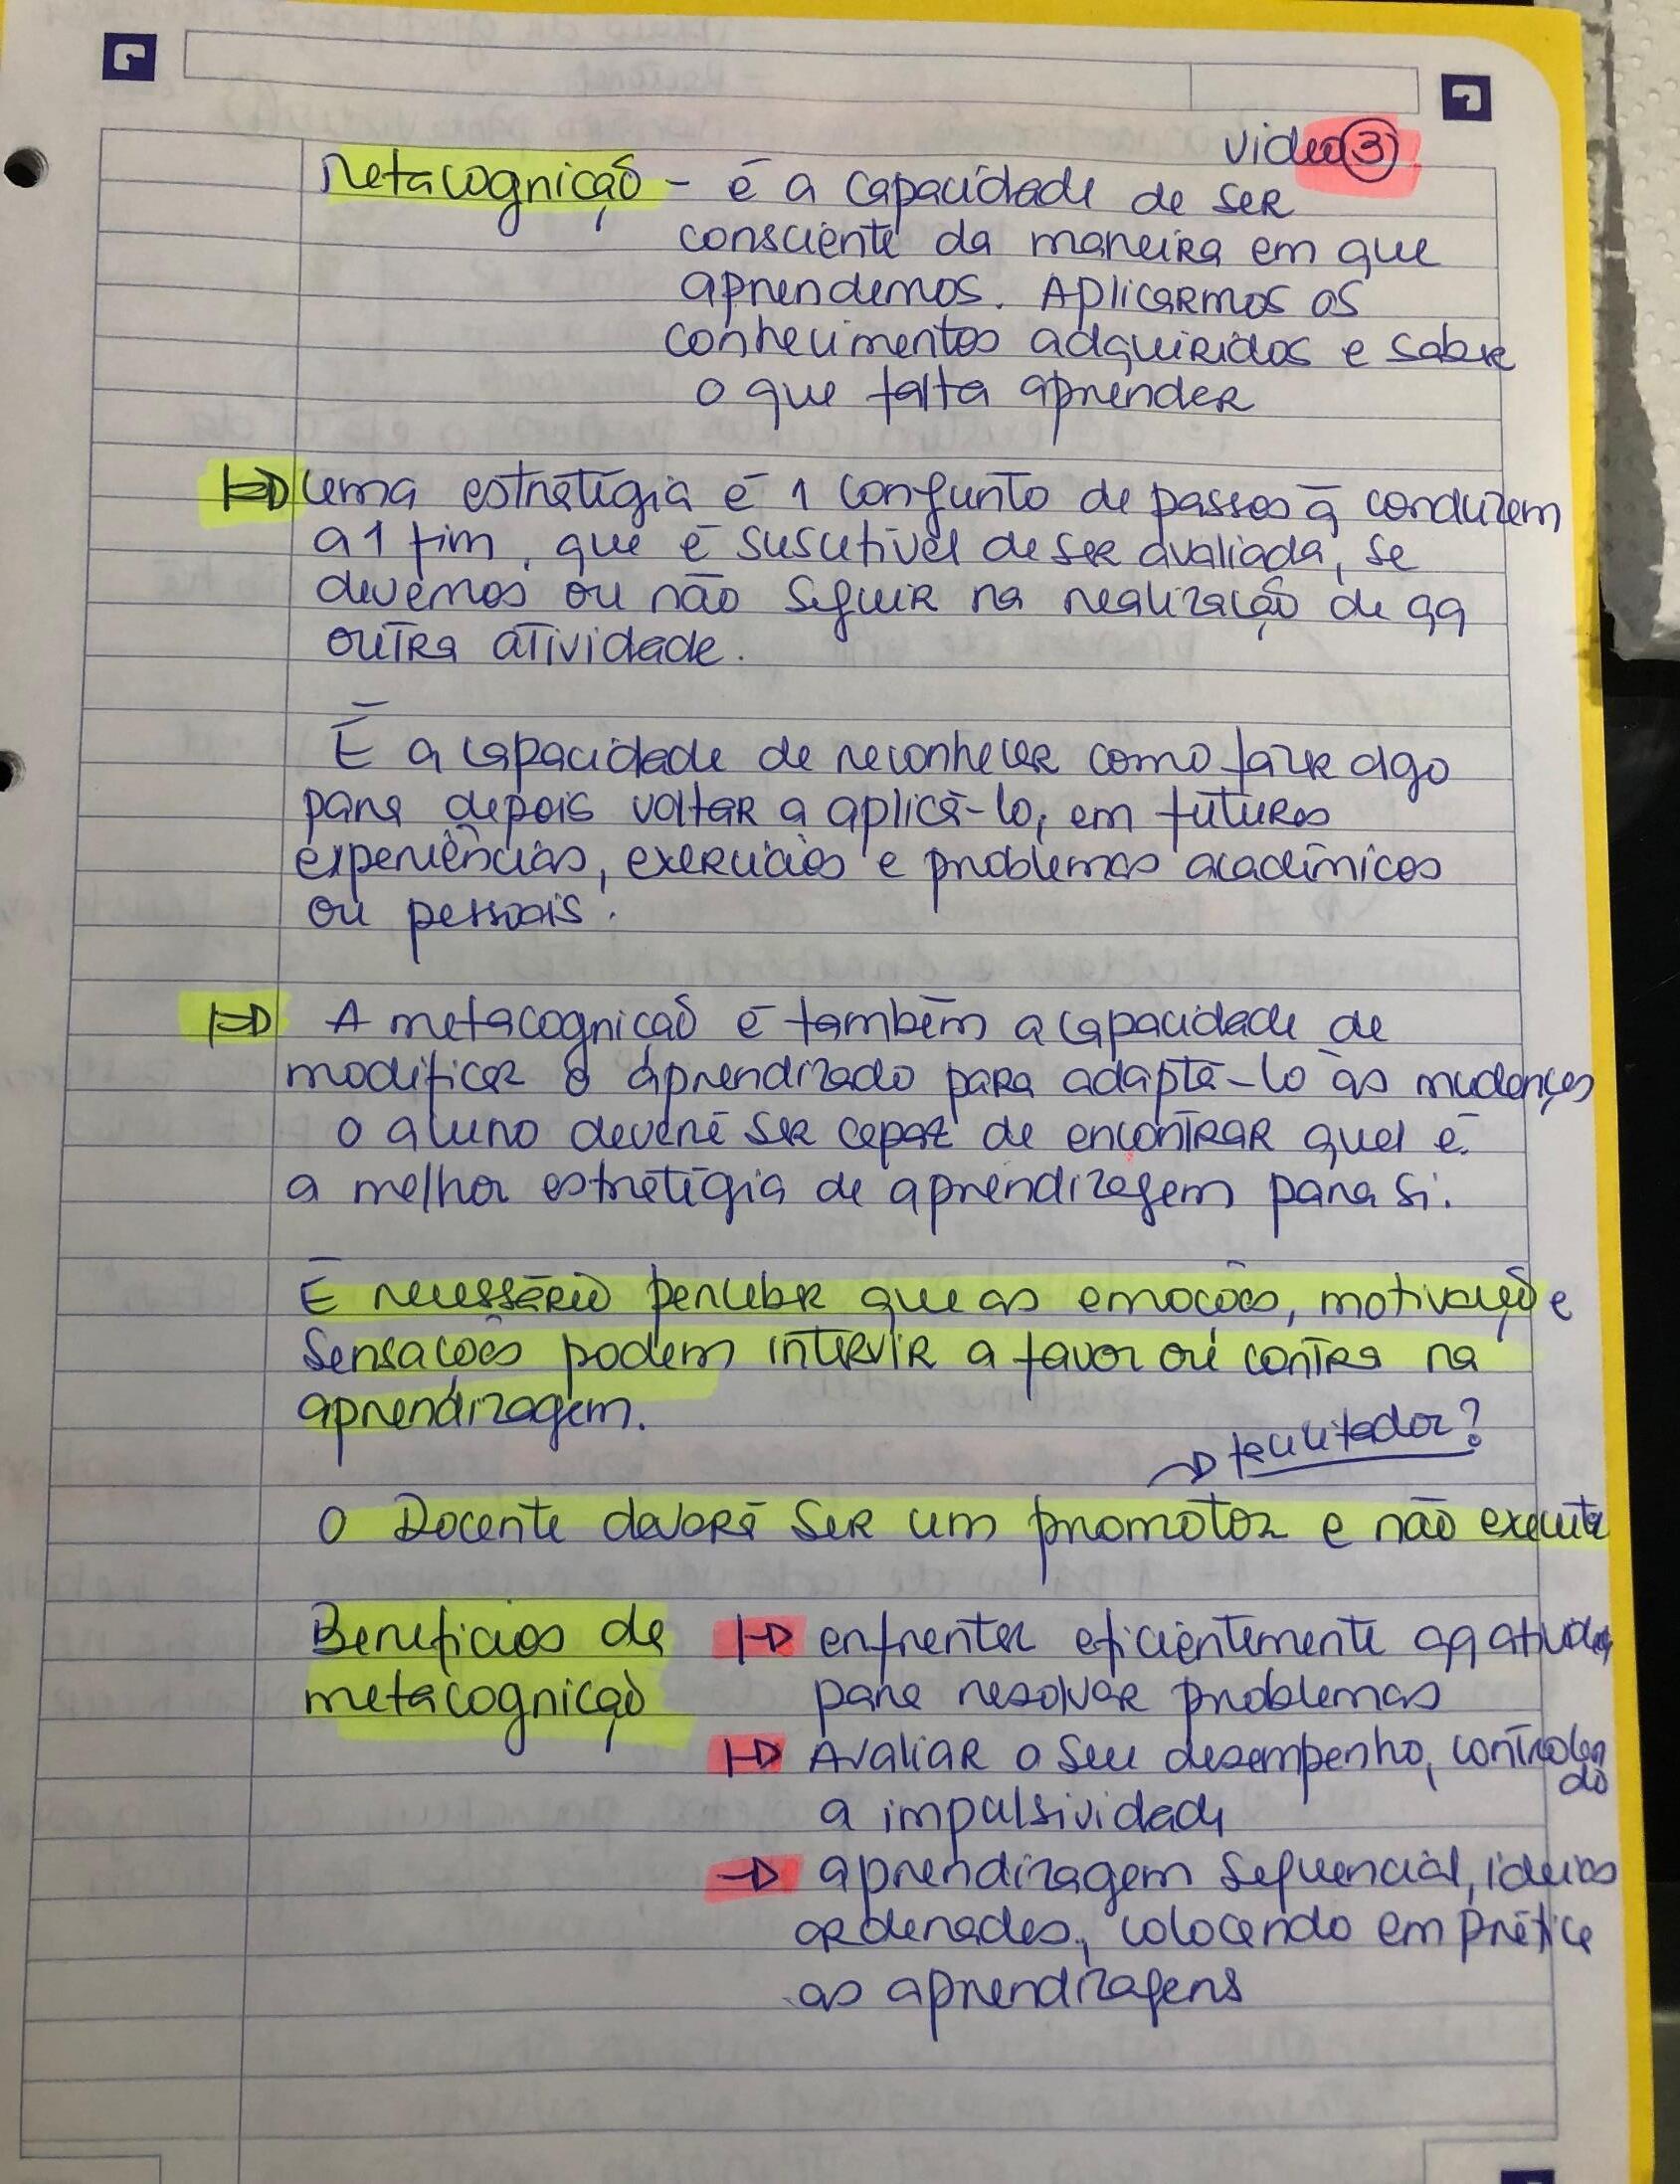 video 3
Metacognição - é a capacidade de ser
consciente da maneira em que
aprendemos. Aplicarmos os
conhecimentos adquiridos e saber
o que falta aprender
Uma estratégia é 1 conjunto de passos q̄ conduzem
a 1 fim, que é suscetível de ser avaliada, se
devemos ou não seguir na realização de qq
outra atividade.
É a capacidade de reconhecer como fazer algo
para depois voltar a aplicá-lo, em futuras
experiências, exercícios e problemas académicos
ou pessoais.
A metacognição é também a capacidade de
modificar o aprendizado para adaptá-lo às mudanças
o aluno deverá ser capaz de encontrar qual é
a melhor estratégia de aprendizagem para si.
É necessário perceber que as emoções, motivação e
sensações podem intervir a favor ou contra na
aprendizagem.
→ facilitador?
O Docente deverá ser um promotor e não executa
Benefícios da → enfrentar eficientemente qq ativdd
metacognição para resolver problemas
→ Avaliar o seu desempenho, controlan
do
a impulsividade
→ aprendizagem sequencial, ideias
ordenadas, colocando em prática
as aprendizagens